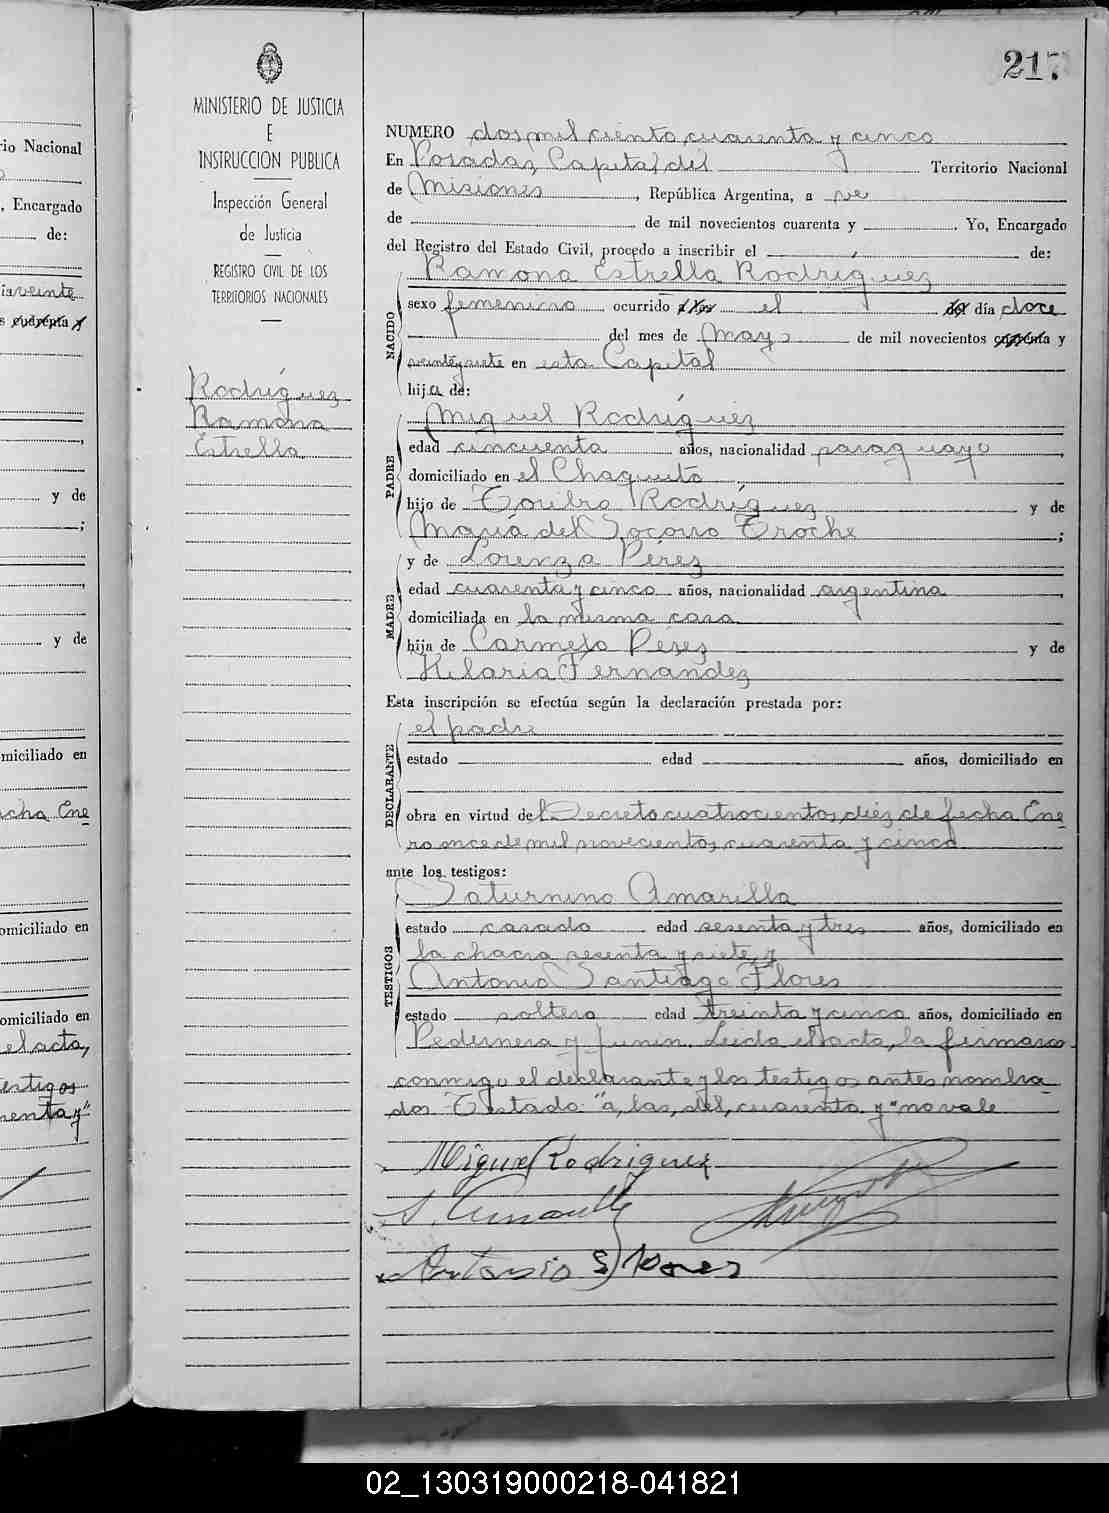 217
MINISTERIO DE JUSTICIA
E
INSTRUCCION PUBLICA
Inspección General
de Justicia
REGISTRO CIVIL DE LOS
TERRITORIOS NACIONALES
Rodríguez
Ramona
Estrella
NUMERO dos mil ciento cuarenta y cinco
En Posadas, Capital del Territorio Nacional
de Misiones, República Argentina, a ve
de de mil novecientos cuarenta y . Yo, Encargado
del Registro del Estado Civil, procedo a inscribir el de:
Ramona Estrella Rodríguez
NACIDO
sexo femenino ocurrido el día doce
del mes de mayo de mil novecientos cuarenta y
veintisiete en esta Capital
hija de:
Miguel Rodríguez
PADRE
edad cincuenta años, nacionalidad paraguayo
domiciliado en el Chaquito
hijo de Toribio Rodríguez y de
María del Socorro Troche ;
y de Lorenza Pérez
MADRE
edad cuarenta y cinco años, nacionalidad argentina
domiciliada en la misma casa
hija de Carmelo Perez y de
Hilaria Fernandez
Esta inscripción se efectúa según la declaración prestada por:
el padre
DECLARANTE
estado edad años, domiciliado en
obra en virtud del Decreto cuatrocientos diez de fecha Ene
ro once de mil novecientos cuarenta y cinco
ante los testigos:
Saturnino Amarilla
TESTIGOS
estado casado edad sesenta y tres años, domiciliado en
la chacra sesenta y siete, y
Antonio Santiago Flores
estado soltero edad treinta y cinco años, domiciliado en
Pedernera y Junin. Leida el acta, la firmaron
conmigo el declarante y los testigos antes nombra
dos Testado "a, las, del, cuarenta y" no vale
Miguel Rodriguez
S. Amarilla
Antonio S Flores
io Nacional
, Encargado
de:
veinte
s cuarenta y
y de
;
y de
miciliado en
echa Ene
omiciliado en
omiciliado en
el acta,
testigos
renta y"
02_130319000218-041821